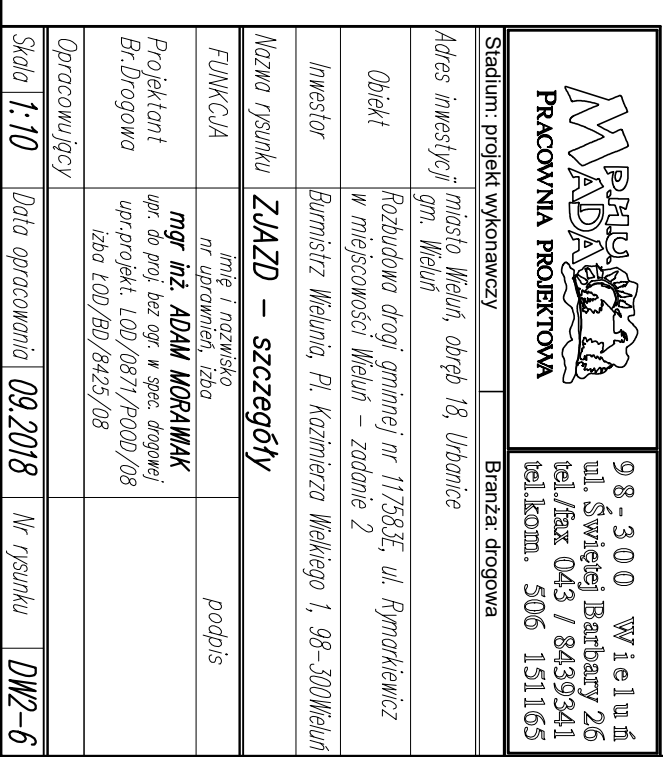 P.H.U.
MADA
PRACOWNIA PROJEKTOWA
98-300 Wieluń
ul. Świętej Barbary 26
tel./fax 043 / 8439341
tel.kom. 506 151165
Stadium: projekt wykonawczy
Branża: drogowa
Adres inwestycji
miasto Wieluń, obręb 18, Urbanice
gm. Wieluń
Obiekt
Rozbudowa drogi gminnej nr 117583E, ul. Rymarkiewicz
w miejscowości Wieluń – zadanie 2
Inwestor
Burmistrz Wielunia, Pl. Kazimierza Wielkiego 1, 98-300Wieluń
Nazwa rysunku
ZJAZD – szczegóły
FUNKCJA
imię i nazwisko
nr uprawnień, izba
podpis
Projektant
Br.Drogowa
mgr inż. ADAM MORAWIAK
upr. do proj. bez ogr. w spec. drogowej
upr.projekt. LOD/0871/POOD/08
izba ŁOD/BD/8425/08
Opracowujący
Skala 1:10 Data opracowania 09.2018 Nr rysunku DW2-6